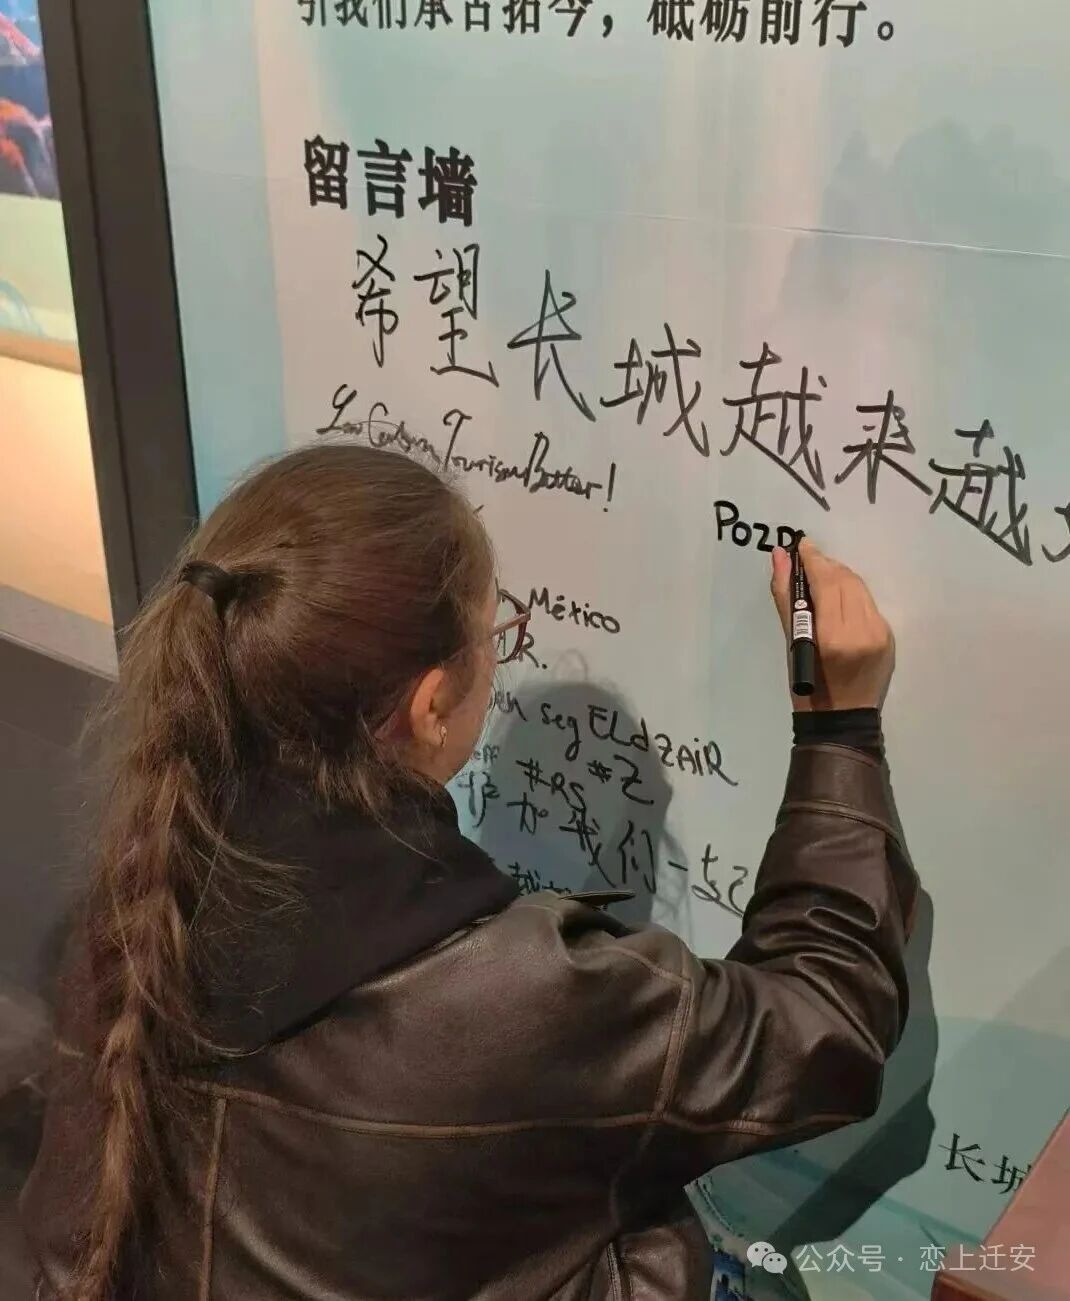 引我们承古拓今，砥砺前行。
留言墙
希望长城越来越
Tourism Better!
Pozd
México
R.
seg ELd ZAiR
#RS #Z
护 加 我们一起
越
长城
公众号 · 恋上迁安